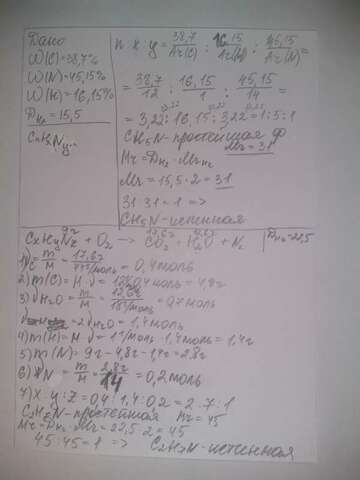 Дано
W(C)=38,7%
W(N)=45,15%
W(H)=16,15%
Dн₂=15,5
CxHyNz...
n:x:y=38,7/Ar(C) : 16,15/Ar(H) : 45,15/Ar(N) =
= 38,7/12 : 16,15/1 : 45,15/14 =
= 3,22 : 16,15 : 3,22 = 1:5:1
CH₅N-простейшая ф
Mr=31
Mr=Dн₂·Mrн₂
Mr=15,5·2=31
31:31=1 =>
CH₅N-истенная
9г 17,6г 12,6г
CxHyNz + O₂ → CO₂ + H₂O + N₂ Dн₂=22,5
1) νC = m/M = 17,6г/44г/моль = 0,4 моль
2) m(C) = M·ν = 12·0,4 моль = 4,8г
3) νH₂O = m/M = 12,6г/18г/моль = 0,7 моль
=2νH₂O = 1,4 моль
4) m(H) = M·ν = 1г/моль·1,4 моль = 1,4г
5) m(N) = 9г - 4,8г - 1,4г = 2,8г
6) νN = m/M = 2,8г/14 = 0,2 моль
7) x:y:z = 0,4:1,4:0,2 = 2:7:1
C₂H₇N-простейшая Mr=45
Mr=Dн₂·Mr=22,5·2=45
45:45=1 => C₂H₇N-истенная